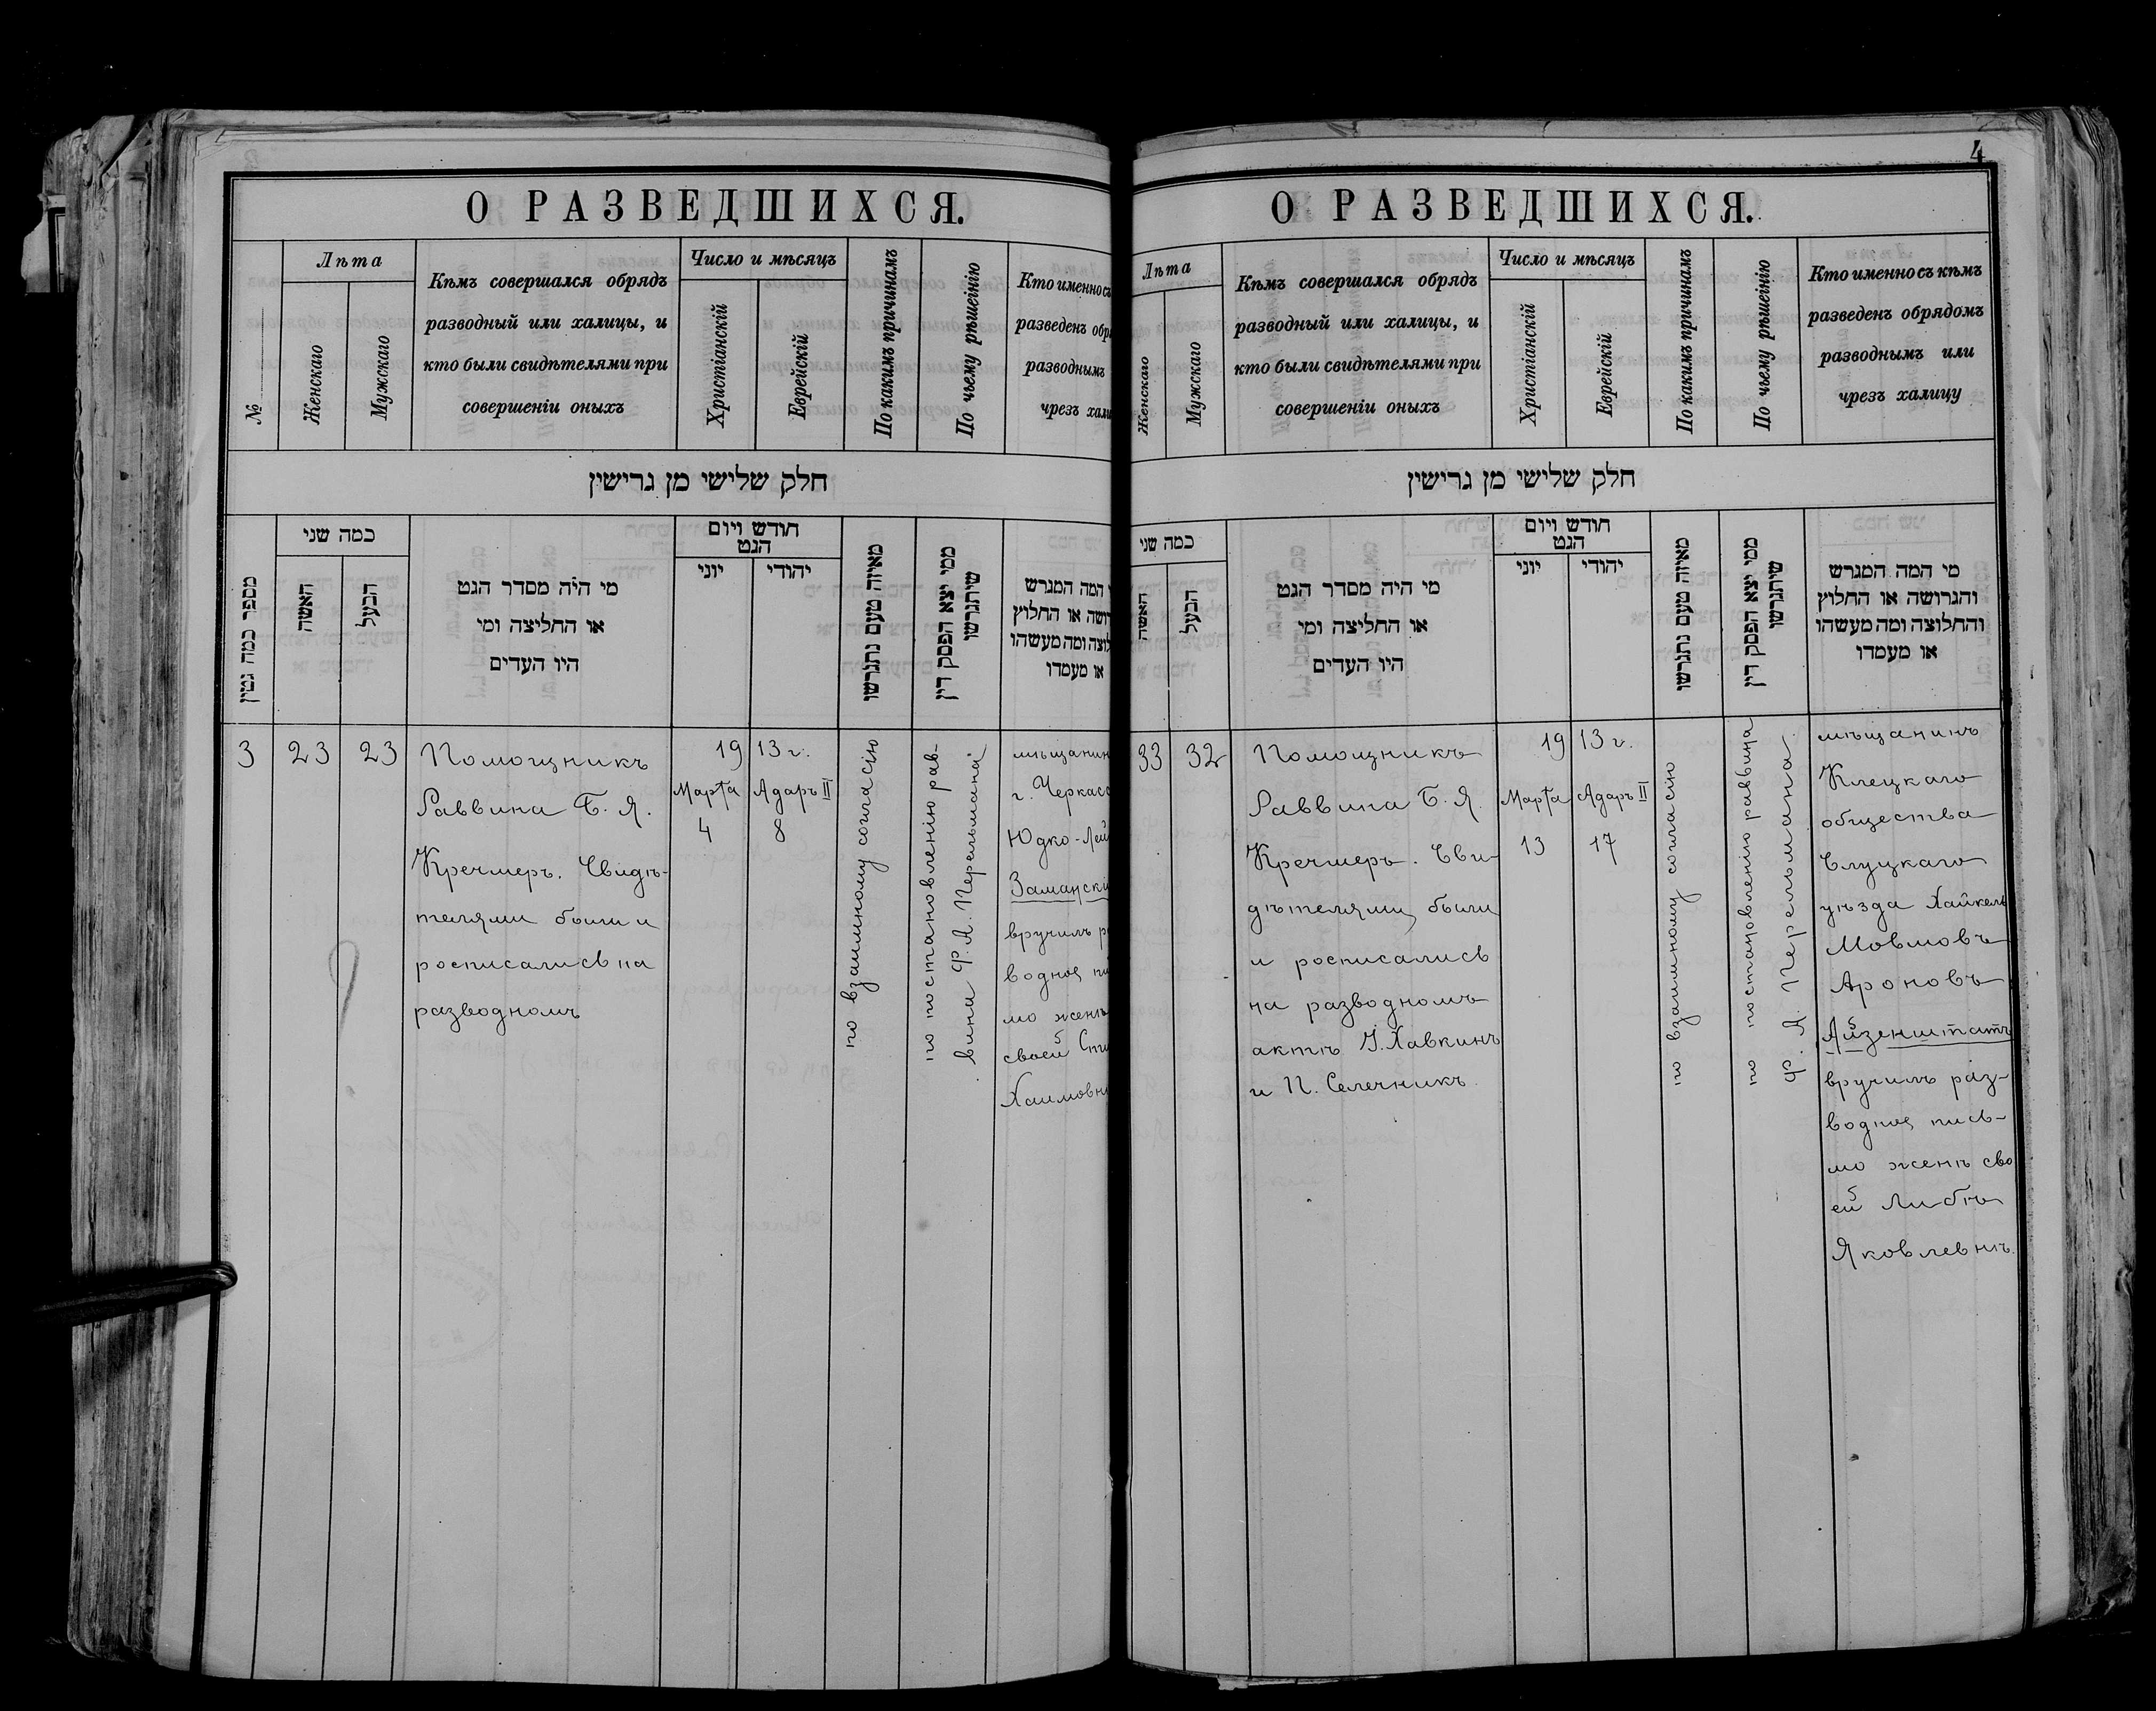 О РАЗВЕДШИХСЯ.
№
Лѣта
Женскаго
Мужскаго
Кѣмъ совершался обрядъ
разводный или халицы, и
кто были свидѣтелями при
совершеніи оныхъ
Число и мѣсяцъ
Христіанскій
Еврейскій
По какимъ причинамъ
По чьему рѣшеінію
Кто именно съ
разведенъ обр
разводнымъ
чрезъ хали
חלק שלישי מן גרישין
מספר כמה גטין
כמה שני
האשה
הבעל
מי היה מסדר הגט
או החליצה ומי
היו העדים
חודש ויום
הגט
יוני
יהודי
מאיזה טעם נתגרשו
ממי יצא הפסק דין
שיתגרשו
המה המגרש
רושה או החלוץ
לוצה ומה מעשהו
או מעמדו
3
23
23
Помощникъ
Раввина Б. Я.
Кречмеръ. Свидѣ-
телями были и
росписались на
разводномъ
19 13 г.
Марта
4
Адаръ II
8
по взаимному согласію
по постановленію рав-
вина Ф. А. Перельмана
мѣщанин
г. Черкасс
Юдко-Лей
Замански
вручилъ р
водное пи
мо женѣ
своей
Хаимовн
4
О РАЗВЕДШИХСЯ.
Лѣта
Женскаго
Мужскаго
Кѣмъ совершался обрядъ
разводный или халицы, и
кто были свидѣтелями при
совершеніи оныхъ
Число и мѣсяцъ
Христіанскій
Еврейскій
По какимъ причинамъ
По чьему рѣшеінію
Кто именно съ кѣмъ
разведенъ обрядомъ
разводнымъ или
чрезъ халицу
חלק שלישי מן גרישין
כמה שני
האשה
הבעל
מי היה מסדר הגט
או החליצה ומי
היו העדים
חודש ויום
הגט
יוני
יהודי
מאיזה טעם נתגרשו
ממי יצא הפסק דין
שיתגרשו
מי המה המגרש
והגרושה או החלוץ
והחלוצה ומה מעשהו
או מעמדו
33
32
Помощникъ
Раввина Б. Я.
Кречмеръ. Сви-
дѣтелями были
и росписались
на разводномъ
актѣ І. Хавкинъ
и П. Селечникъ.
19 13 г.
Марта
13
Адаръ II
17
по взаимному согласію
по постановленію раввина
Ф. А. Перельмана.
мѣщанинъ
Клецкаго
общества
Слуцкаго
уѣзда Хайкель
Мовшовъ
Ароновъ
Айзенштатъ
вручилъ раз-
водное пись-
мо женѣ сво
ей Либѣ
Яковлевнѣ.